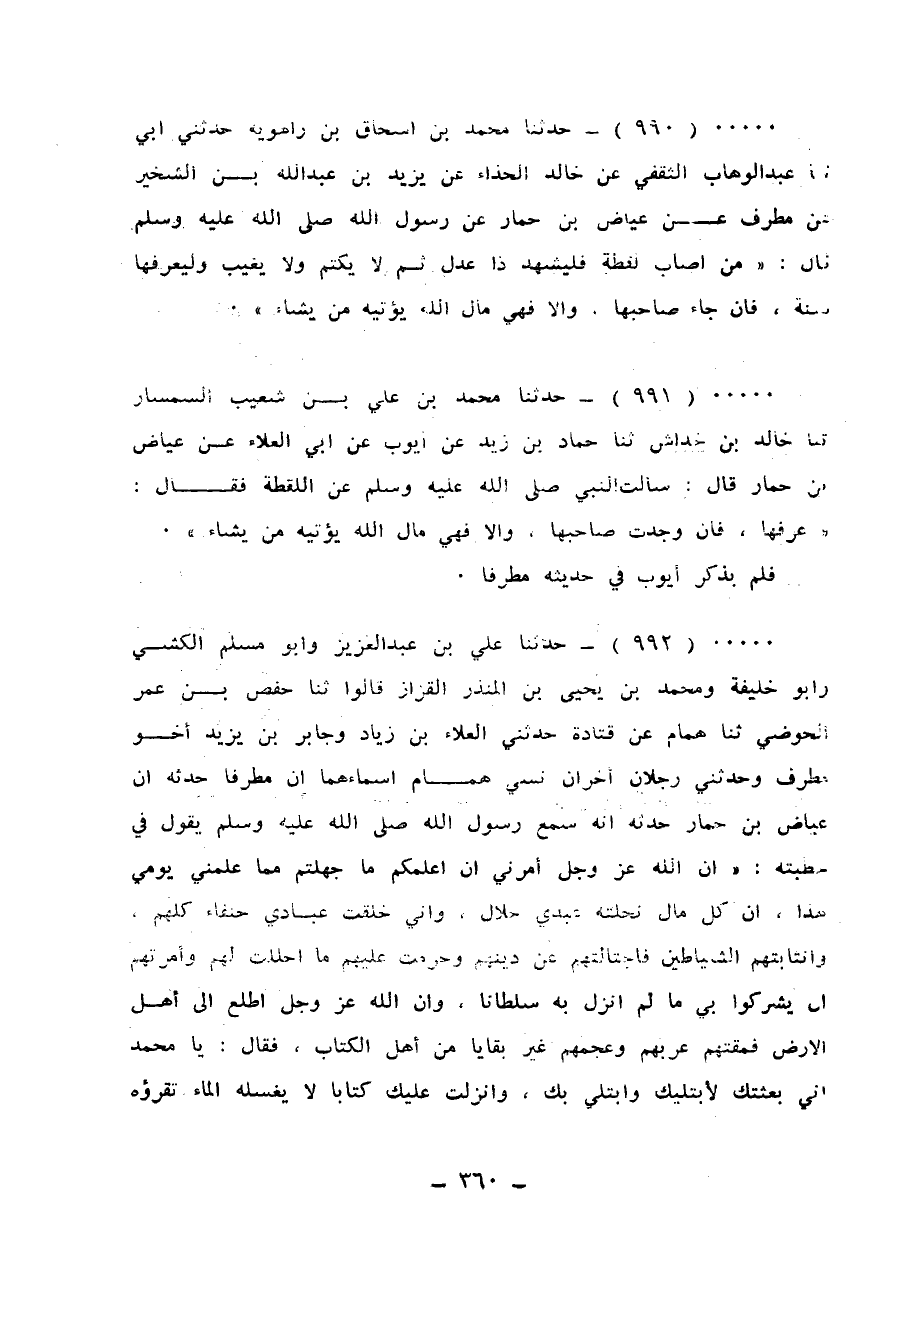 ٠٠٠٠٠ ( ٩٩٠ ) ـ حدثنا محمد بن اسحاق بن راهويه حدثني ابي
ثنا عبدالوهاب الثقفي عن خالد الحذاء عن يزيد بن عبدالله بـــن الشخير
عن مطرف عـــن عياض بن حمار عن رسول الله صلى الله عليه وسلم
قال : « من اصاب لقطة فليشهد ذا عدل ثـم لا يكتم ولا يغيب وليعرفها
سنة ، فان جاء صاحبها ، والا فهي مال الله يؤتيه من يشاء » ٠
٠٠٠٠٠ ( ٩٩١ ) ـ حدثنا محمد بن علي بـــن شعيب السمسار
ثنا خالد بن خداش ثنا حماد بن زيد عن أيوب عن ابي العلاء عـن عياض
بن حمار قال : سألت النبي صلى الله عليه وسلم عن اللقطة فقـــال :
« عرفها ، فان وجدت صاحبها ، والا فهي مال الله يؤتيه من يشاء » ٠
فلم يذكر أيوب في حديثه مطرفا ٠
٠٠٠٠٠ ( ٩٩٢ ) ـ حدثنا علي بن عبدالعزيز وابو مسلم الكشــي
وابو خليفة ومحمد بن يحيى بن المنذر القزاز قالوا ثنا حفص بـــن عمر
الحوضي ثنا همام عن قتادة حدثني العلاء بن زياد وجابر بن يزيد أخـــو
مطرف وحدثني رجلان أخران نسي همـــام اسماءهما ان مطرفا حدثه ان
عياض بن حمار حدثه انه سمع رسول الله صلى الله عليه وسلم يقول في
خطبته : « ان الله عز وجل أمرني ان اعلمكم ما جهلتم مما علمني يومي
هذا ، ان كل مال نحلته عبدي حلال ، واني خلقت عبـادي حنفاء كلهم ،
وانتابتهم الشياطين فاجتالتهم عن دينهم وحرمت عليهم ما احللت لهم وأمرتهم
ان يشركوا بي ما لم انزل به سلطانا ، وان الله عز وجل اطلع الى أهـل
الارض فمقتهم عربهم وعجمهم غير بقايا من أهل الكتاب ، فقال : يا محمد
اني بعثتك لأبتليك وابتلي بك ، وانزلت عليك كتابا لا يغسله الماء تقرؤه
ـ ٣٦٠ ـ